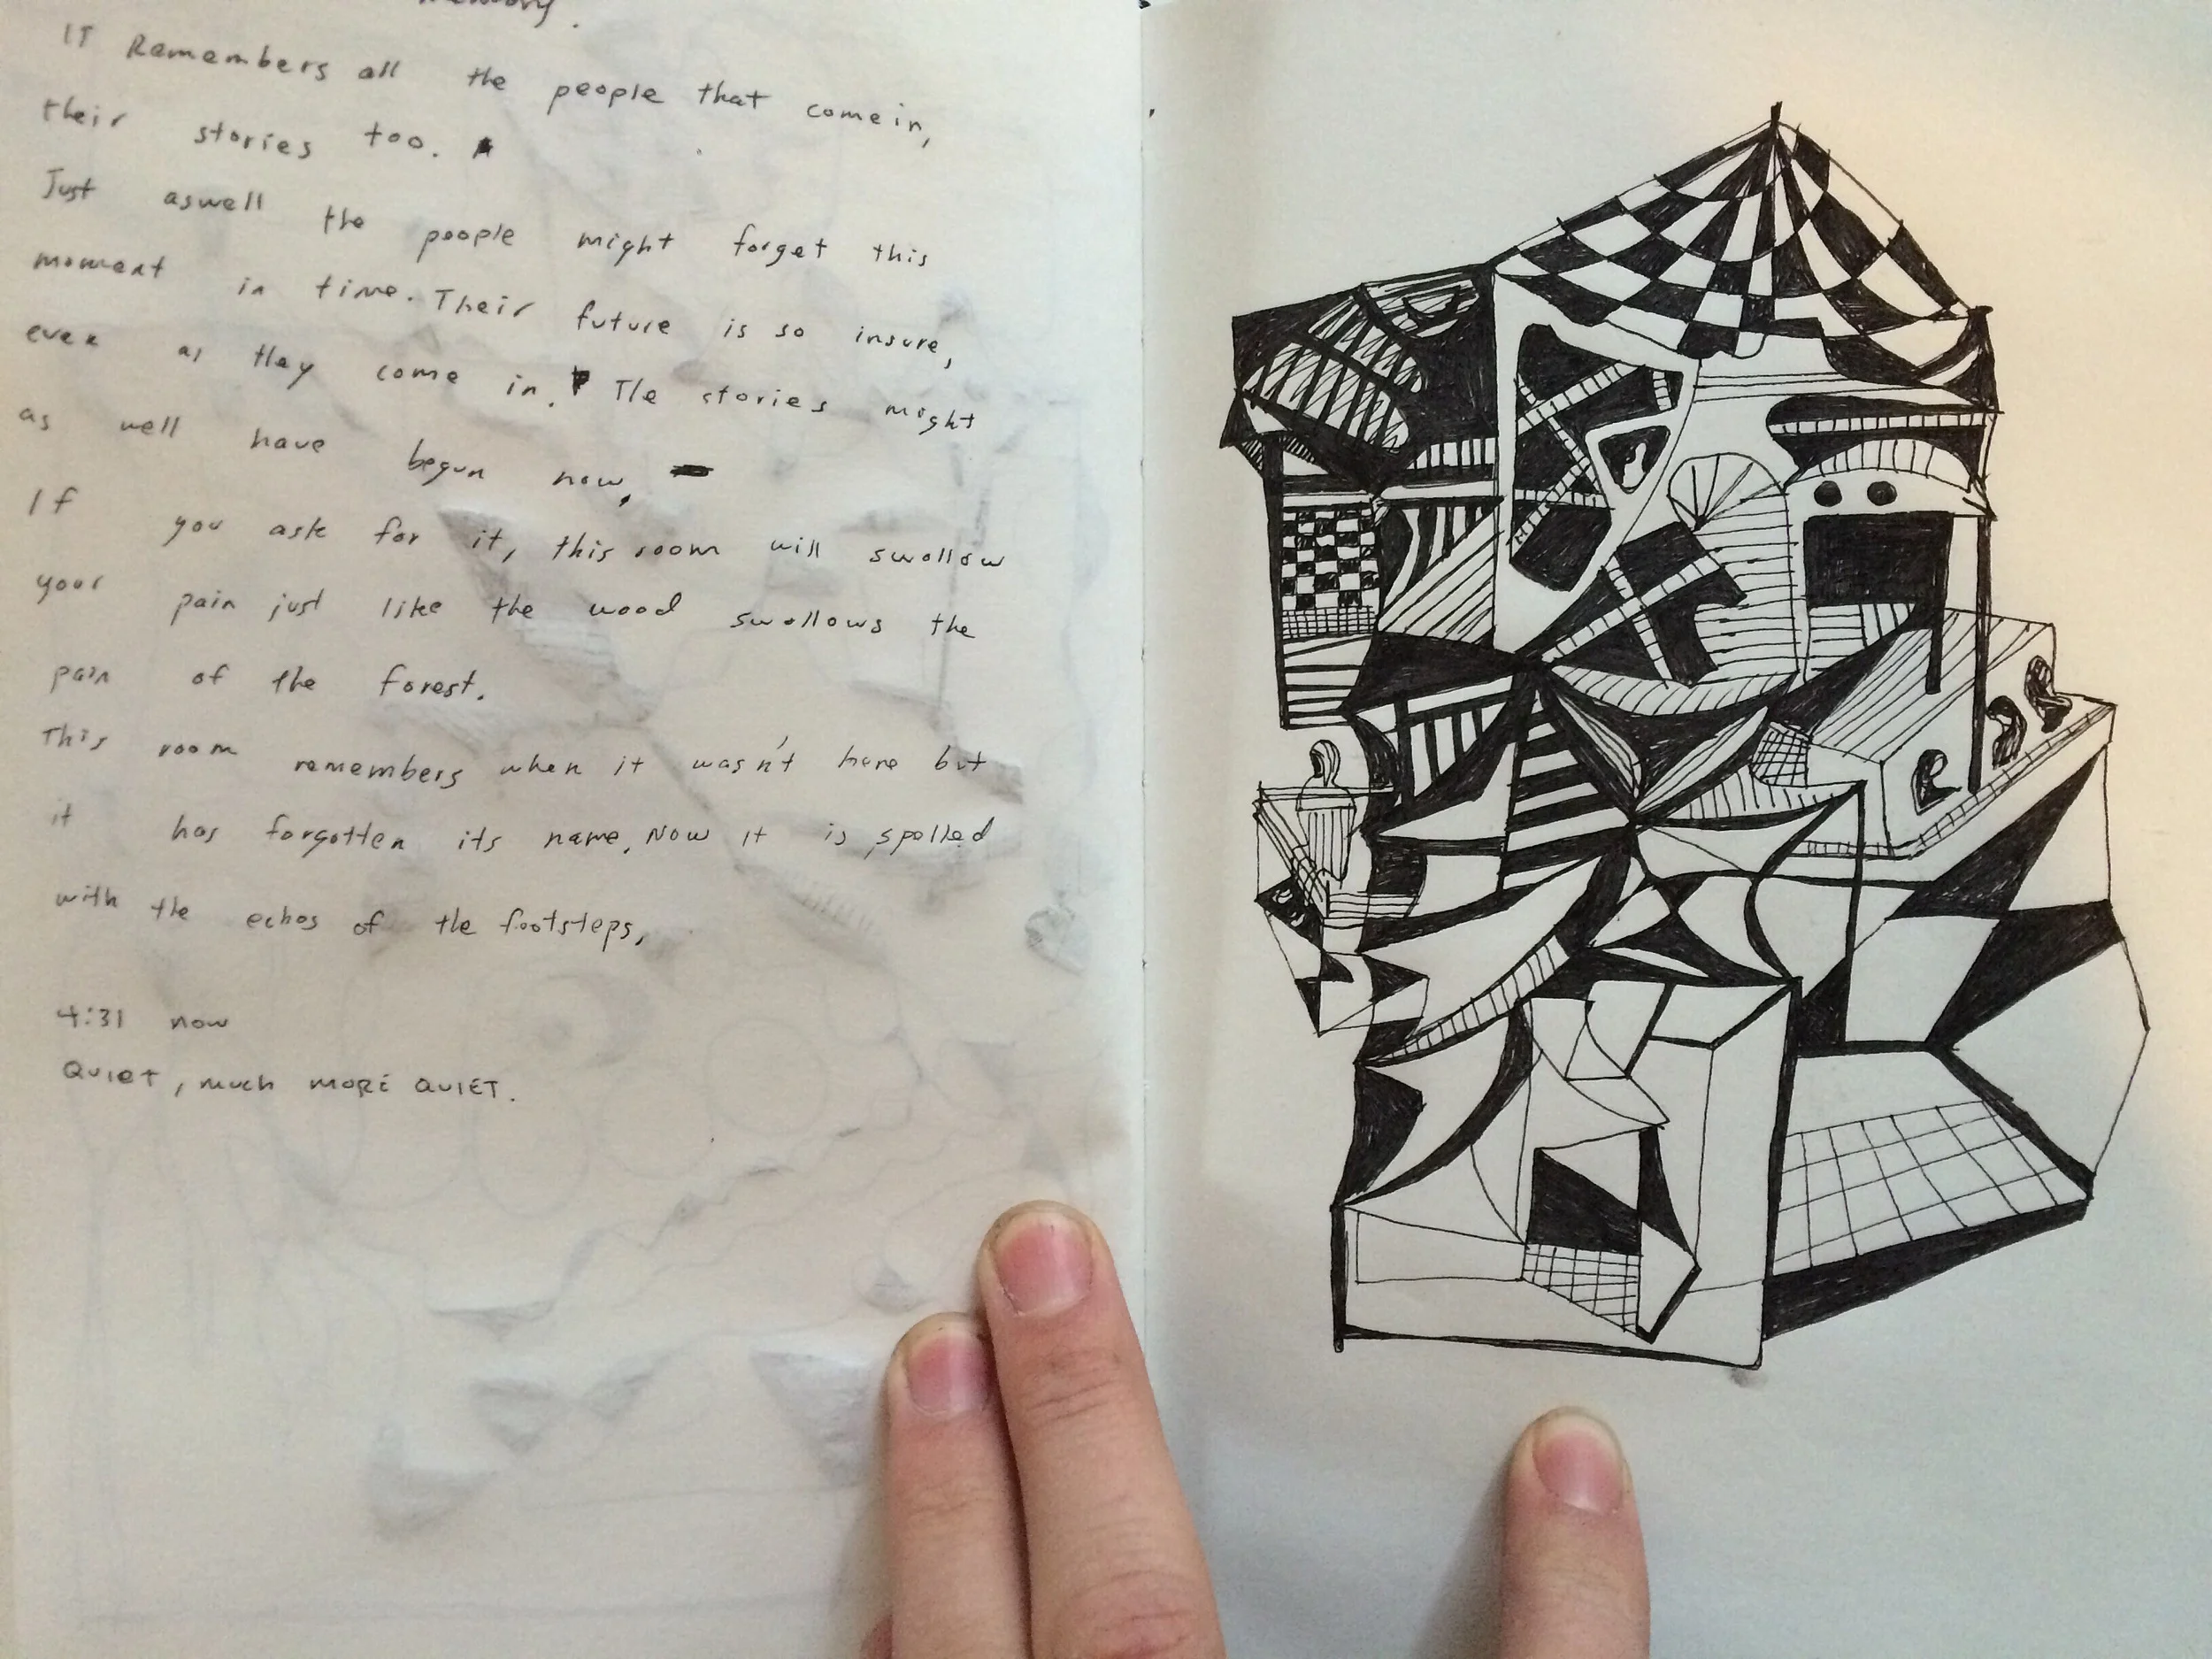 memory.
IT Remembers all the people that come in,
their stories too.
Just aswell the people might forget this
moment in time. Their future is so insure,
even as they come in. The stories might
as well have begun now,
If you ask for it, this room will swollow
your pain just like the wood swollows the
pain of the forest.
This room remembers when it wasn't here but
it has forgotten its name, Now it is spelled
with the echos of the footsteps,
4:31 now
QUIET, much MORE QUIET.